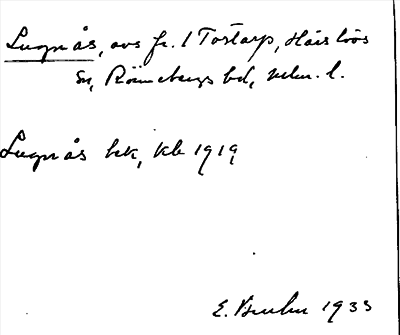 Lugnås, avs fr. 1 Tostarp, Härslövs
sn, Rönnebergs hd, Malm. l.
Lugnås bsk, kb 1919
E. Bruhn 1933